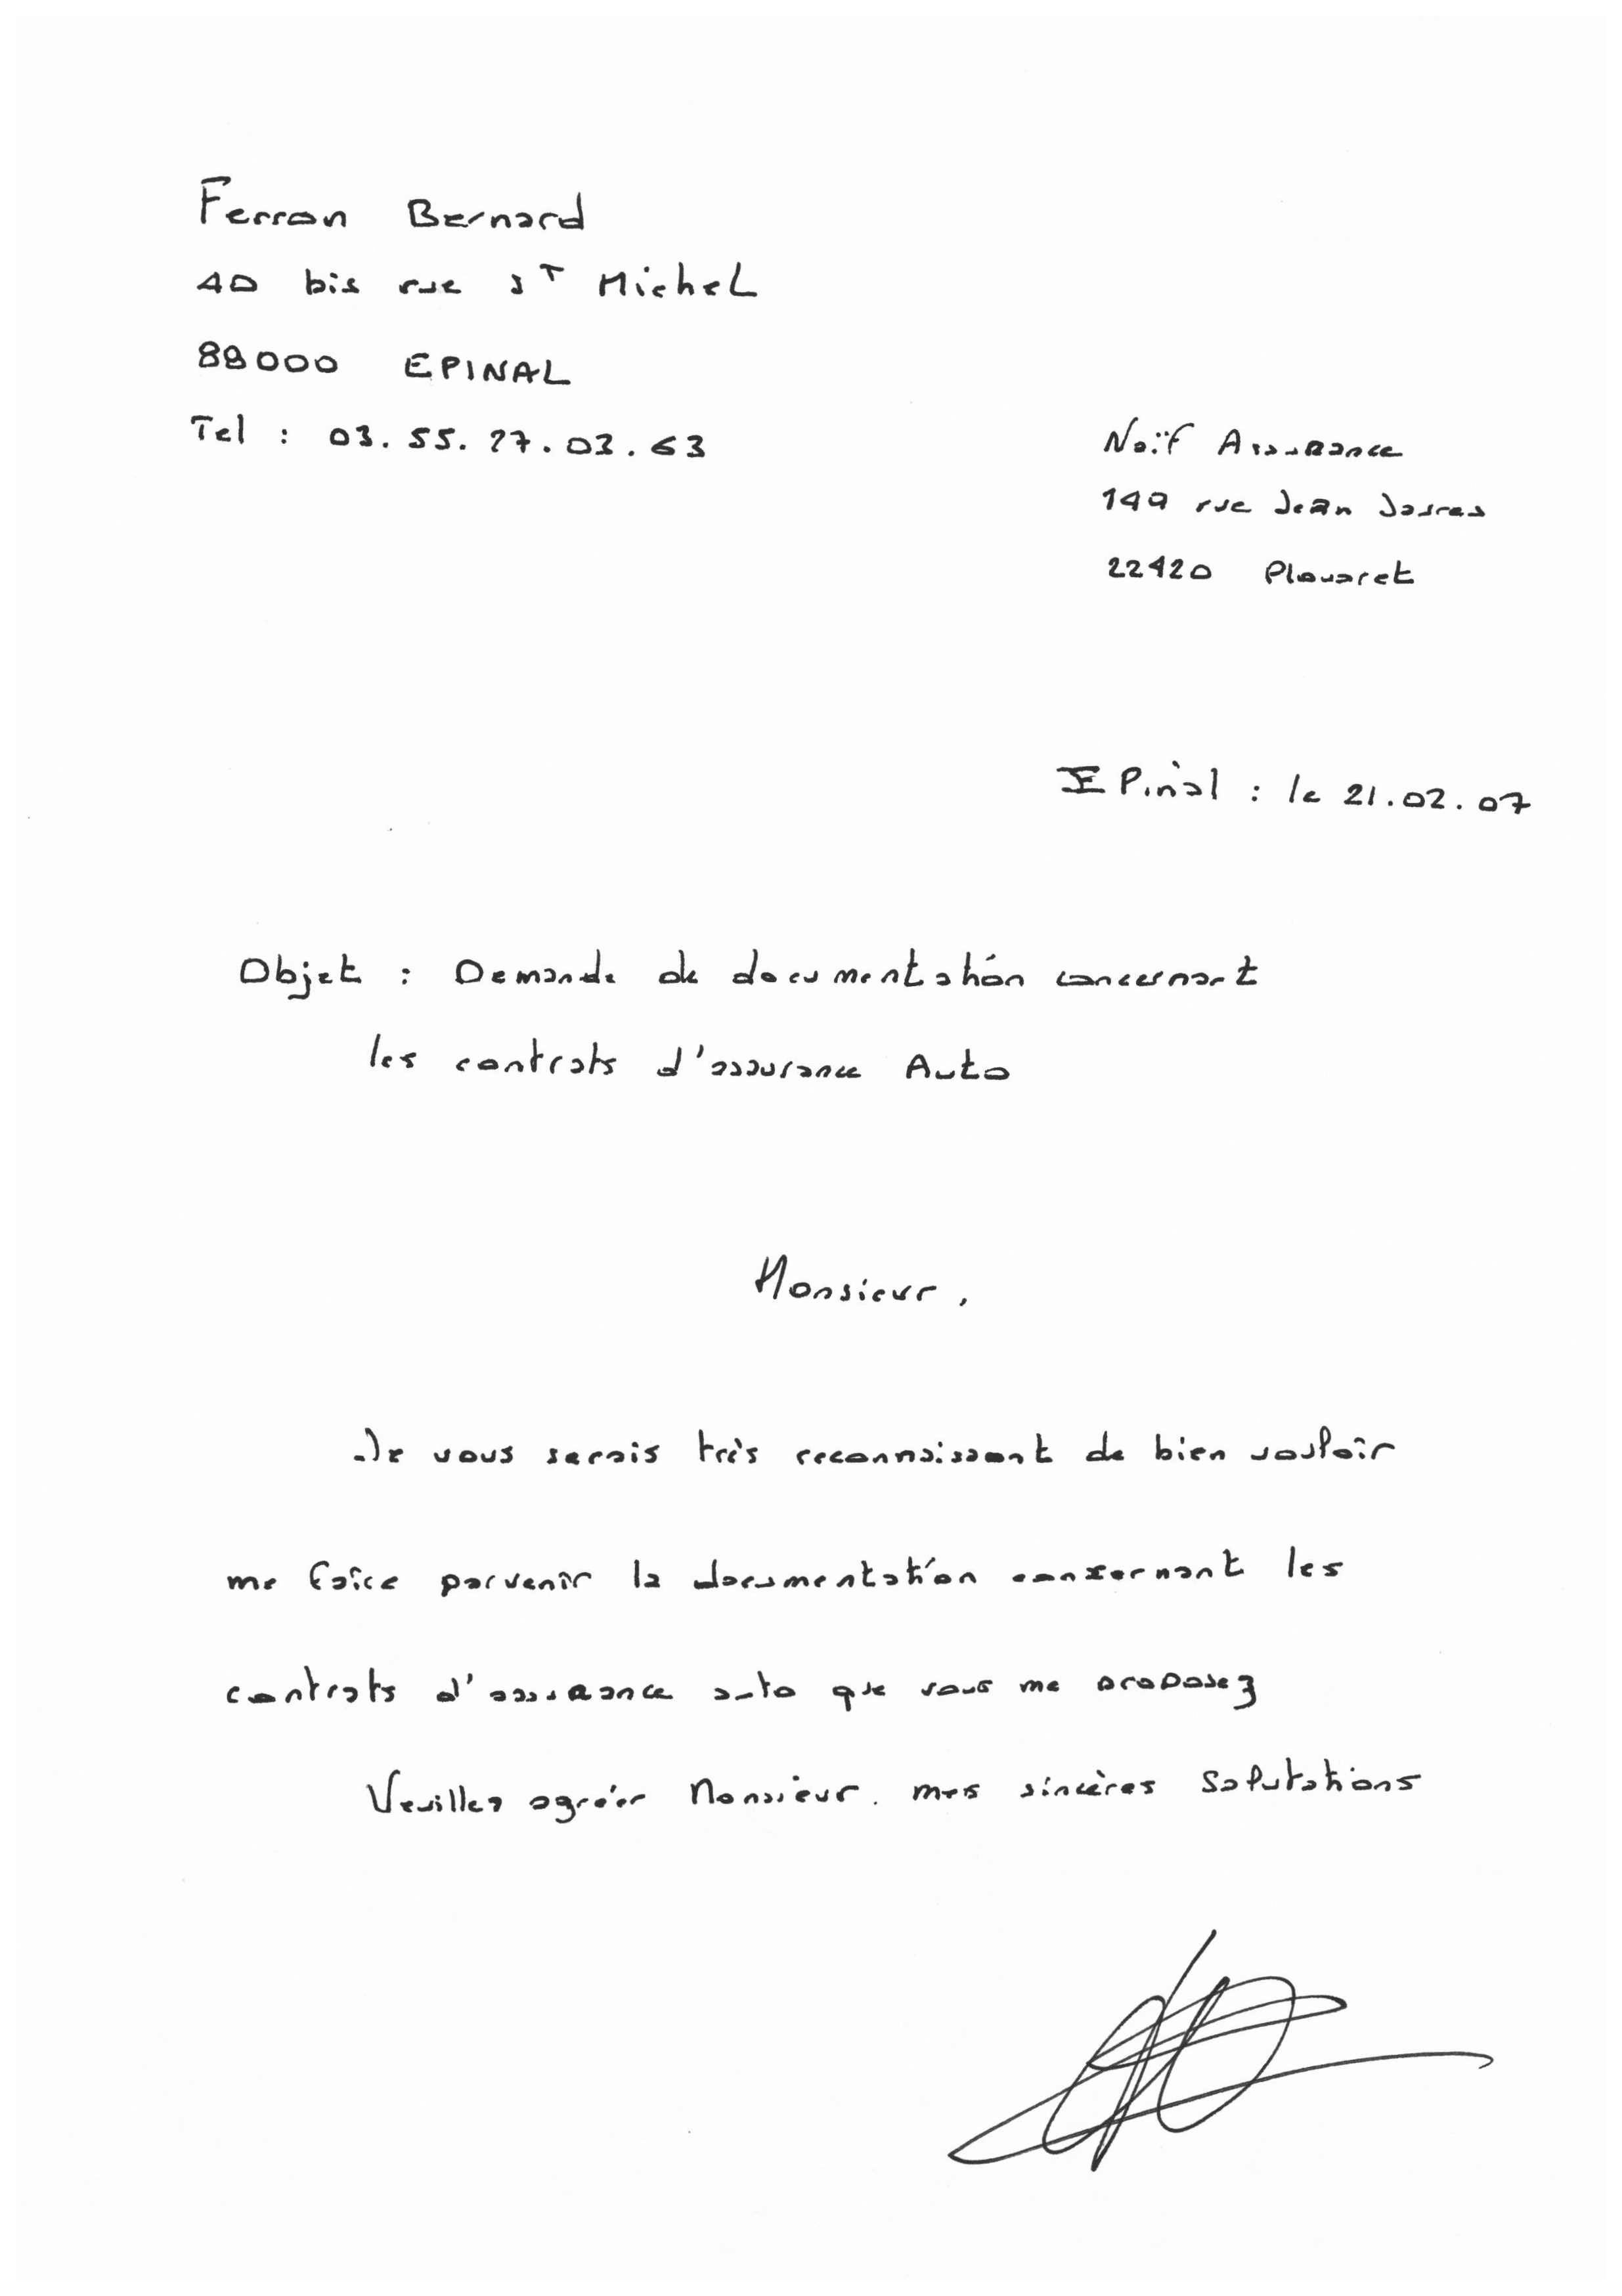 Ferran Bernard
40 bis rue sT Michel
88000 EPINAL
Tel : 03.55.27.03.63
Naïf Assurance
149 rue Jean Jaures
22420 Plouaret
EPinal : le 21.02.07
Objet : Demande de documentation concernant
les contrats d'assurance Auto
Monsieur,
Je vous serais très reconnaissant de bien vouloir
me faire parvenir la documentation concernant les
contrats d'assurance auto que vous me proposez
Veuillez agréer Monsieur. mes sincères salutations